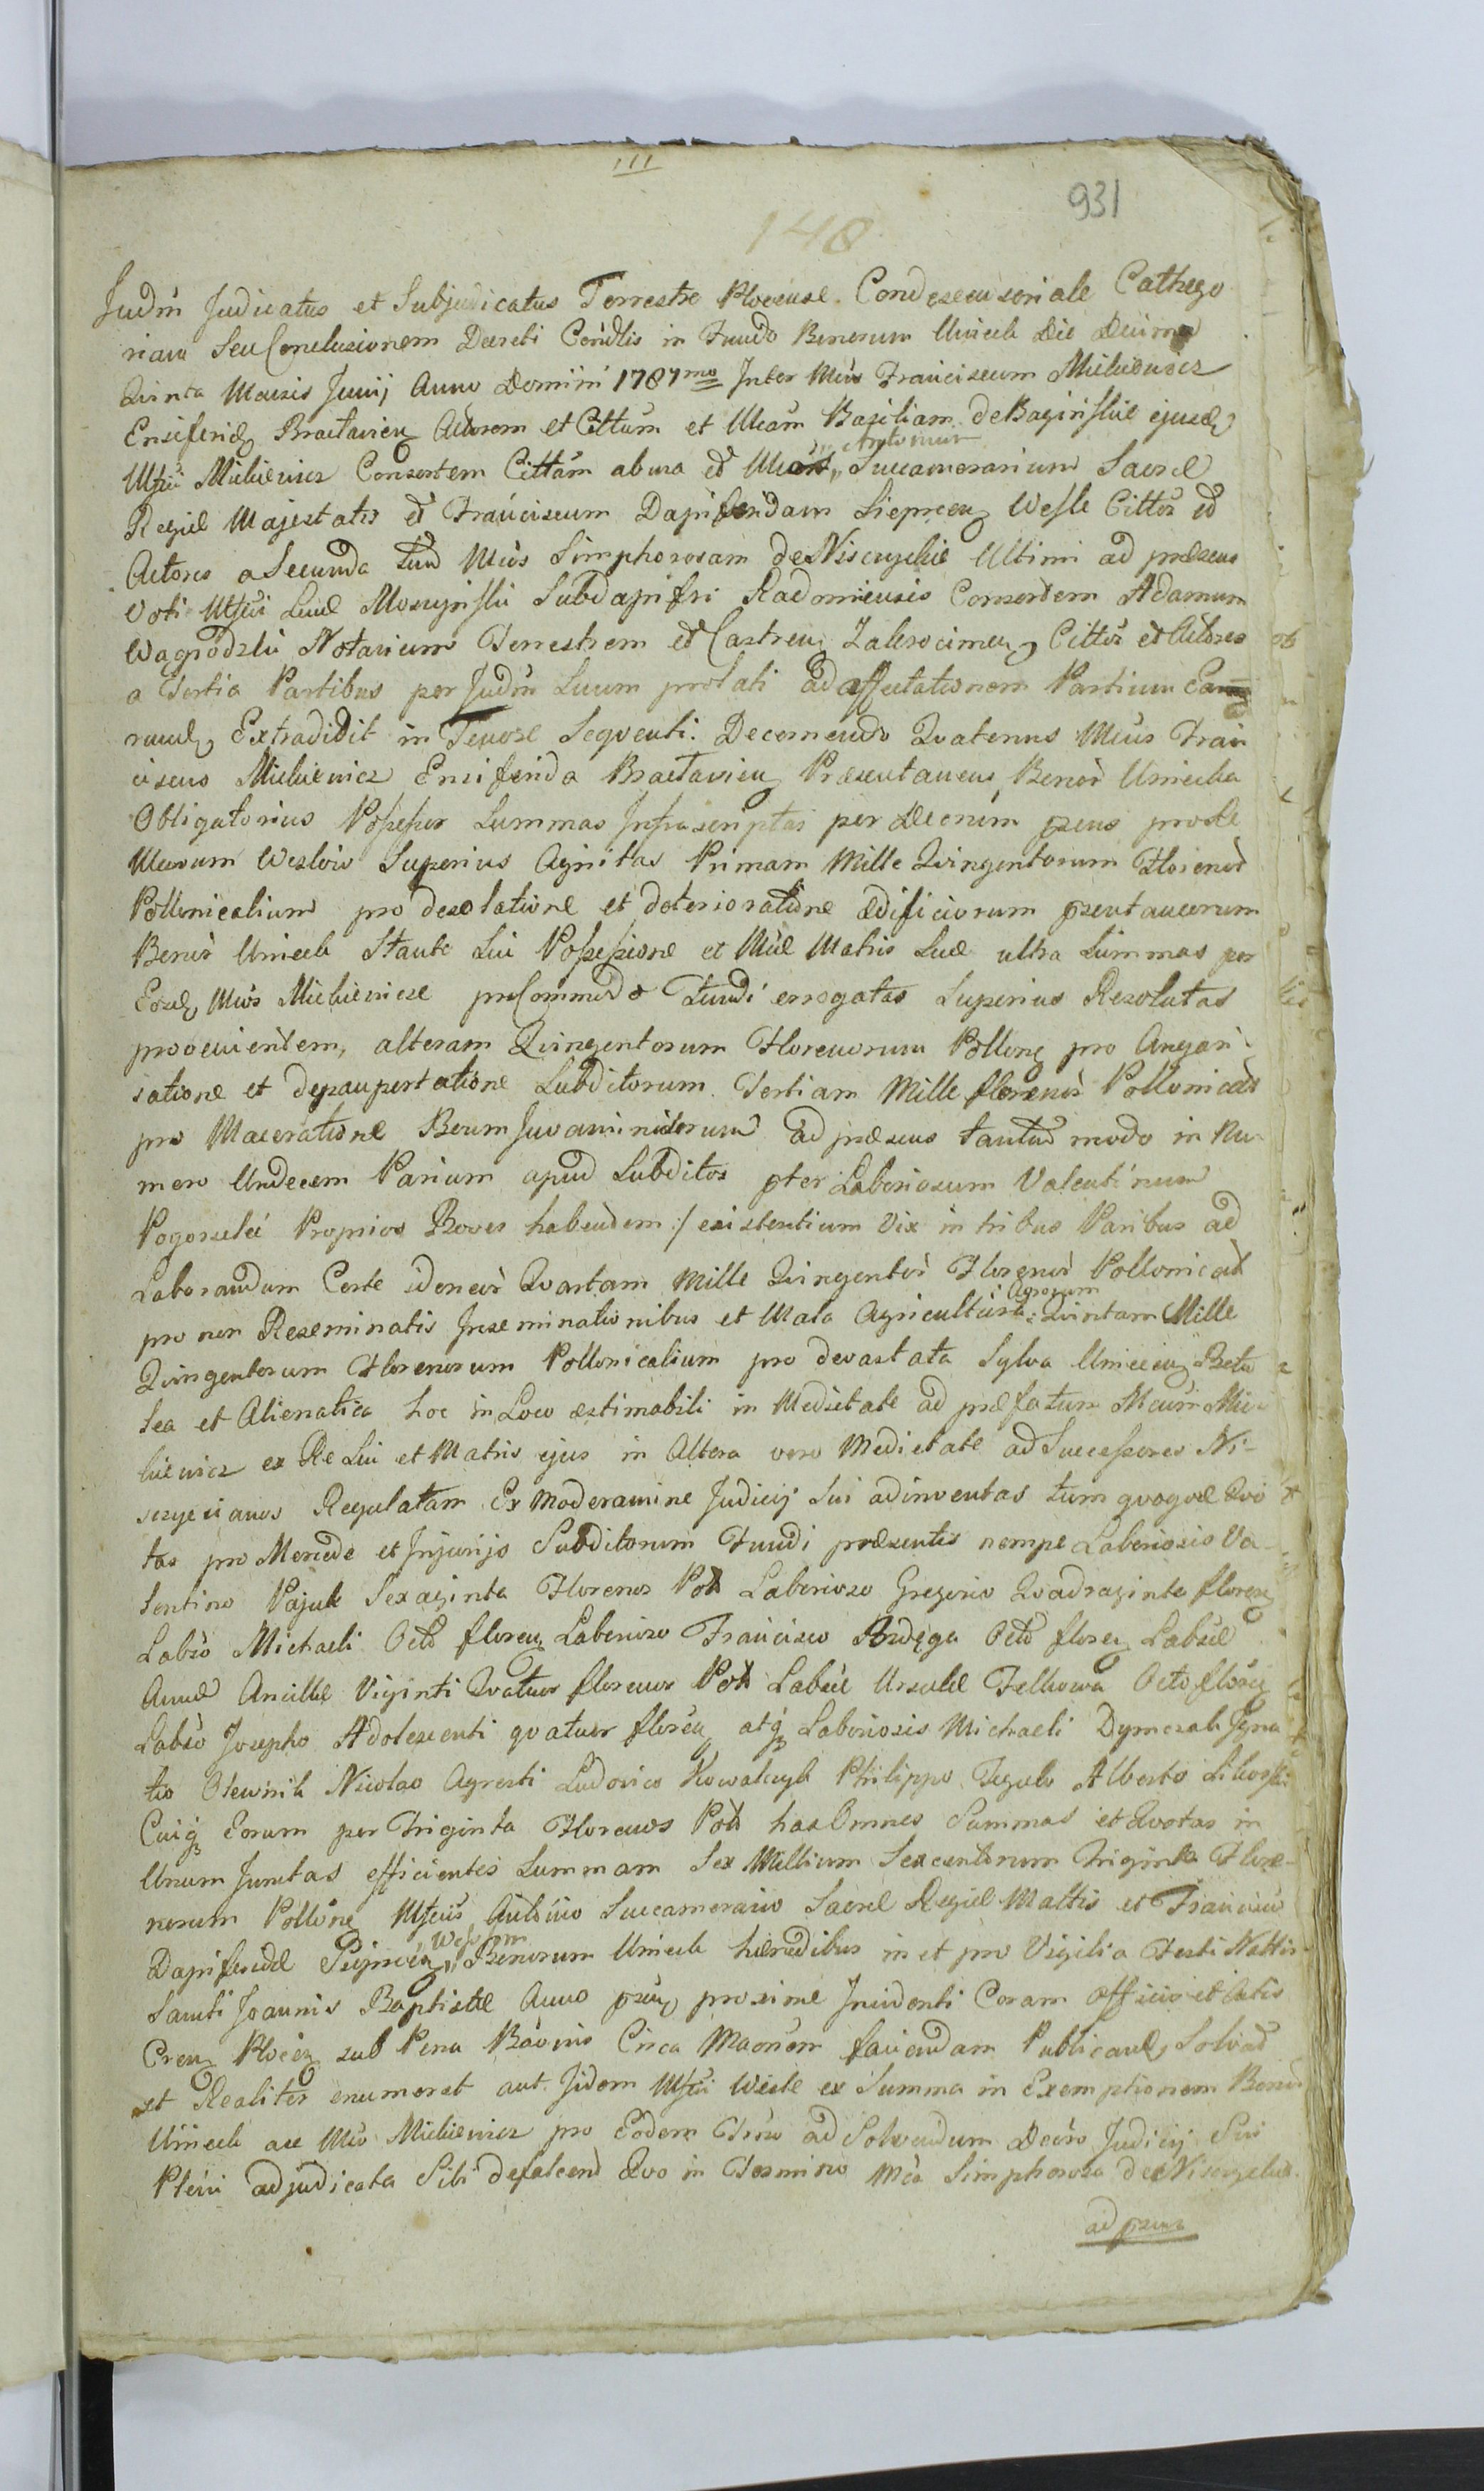 111
931
148
Judm Judicatus et Subjudicatus Terrestre Plocense Condescensoriale Cathego
riam Seu Conclusionem Decreti Condlis in Fundo Bonorum Unieck Die Decima
Quinta Mensis Junij Anno Domini 1787mo Inter Mcum Franciscum Mickiewicz
Ensiferid Bractavien Actorem et Cittum et Mcam Basiliam de Baginskie ejusd
Mfci Mickiewicz Consortem Cittam ab una et Mcos Antonium Succamerarium Sacræ
Regiæ Majestatis et Franciscum Dapiferidam Siepreen Wessle Cittos et
Actores a Secunda tum Mcas Simphorosam de Nisczyckie Ultimi ad præsens
Voti Mfci Lucæ Moszynski Subdapifri Radomiensis Consortem Adamum
Wagrodzki Notarium Terrestrem et Castren Zakrocimen Cittos et Actores
a Tertia Partibus per Judm Suum prolati ad affectationem Partium Ea
rund Extradidit in Tenore Sequenti: Decernendo Quatenus Mcus Fran
ciscus Mickiewicz Ensiferida Bractavien Præsentaneus Benor Uniecka
Obligatorius Possessor Summas Infrascriptas per Decrum præns prole
Mcorum Weslow Superius Agnitas Primam Mille Quingentorum Florenor
Pollonicalium pro desolatione et deterioratione ædificiorum præntaneorum
Benor Unieck Stante Sui Possessione et Mcæ Matris Suæ ultra Summas per
Eosd Mcos Mickiewicze pro Commodo Fundi errogatas Superius Resolutas
proveuientem, alteram Quingentorum Florenorum Pollone pro Angari
satione et depaupertatione Subditorum Tertiam Mille florenor Pollonical
pro Maceratione Boum Juvaminialorum ad præsens tantum modo in Nu
mero Undecem Parium apud Subditos pter Laboriosum Valentinum
Pogorzelei Proprios Boves habendem :/ existentium Vix in tribus Paribus ad
Laborandum Certe idoneor Quartam Mille Quingentor Florenor Pollonical
pro non Reseminatis Inseminationibus et Mala Agricultura Agrorum: Quintam Mille
Quingentorum Florenorum Pollonicalium pro devastata Sylva Unieceny Betu
lea et Alienatica hoc in Loco æstimabili in Medietate ad præfatum Mcum Mic
kiewicz ex Re Sui et Matris ejus in Altera vero Medietate ad Successores Ni-
sczycianos Regulatam Ex Moderamine Judicij Sui adinventas tum quoque Quo
tas pro Mercede et Injurijs Subditorum Fundi præsentis nempe Laboriosis Va-
lentino Pajuk Sexaginta Florenos Pol Laborioso Gregorio Quadraginta floren
Labso Michaeli Octo floren Laborioso Francisco Octo floren Labsæ
Annæ Ancillæ Viginti Quatuor florenos Pol Labsæ Ursulæ Felkowa Octo floren
Labso Josepho Adolescenti quatuor floren atq Laboriosis Michaeli Dymczak Igna
tio Olewnik Nicolao Agresti Ludovico Kowalczyk Philippo Tegulo Alberto Sikorski
Cuiq Eorum per Triginta Florenos Pol has Omnes Summas et Quotas in
Unum Junctas efficientes Summam Sex Millium Sexcentorum Triginta Flore-
norum Pollone Mfcis Antonio Succamerario Sacræ Regiæ Mattis et Francisco
Dapiferidæ Wesslom Bonorum Unieck hæredibus in et pro Vigilia Festi Nattis
Sancti Joannis Baptistæ Anno præn proxime Incidenti Coram Officio et Actis
Cren Plocen sub Pena Bavnis Circa Maonem faciendam Publicand Solvat
et Realiter enumeret aut Iidem Mfci Wesle ex Summa in Exemptionem Bonor
Unieck ac Mco Mickiewicz pro Eodem Trno ad Solvendum Decro Judicij Sui
Pleni adjudicata Sibi defalcend Quo in Termino Mca Simphorosa de Nisczyckie
ad præns